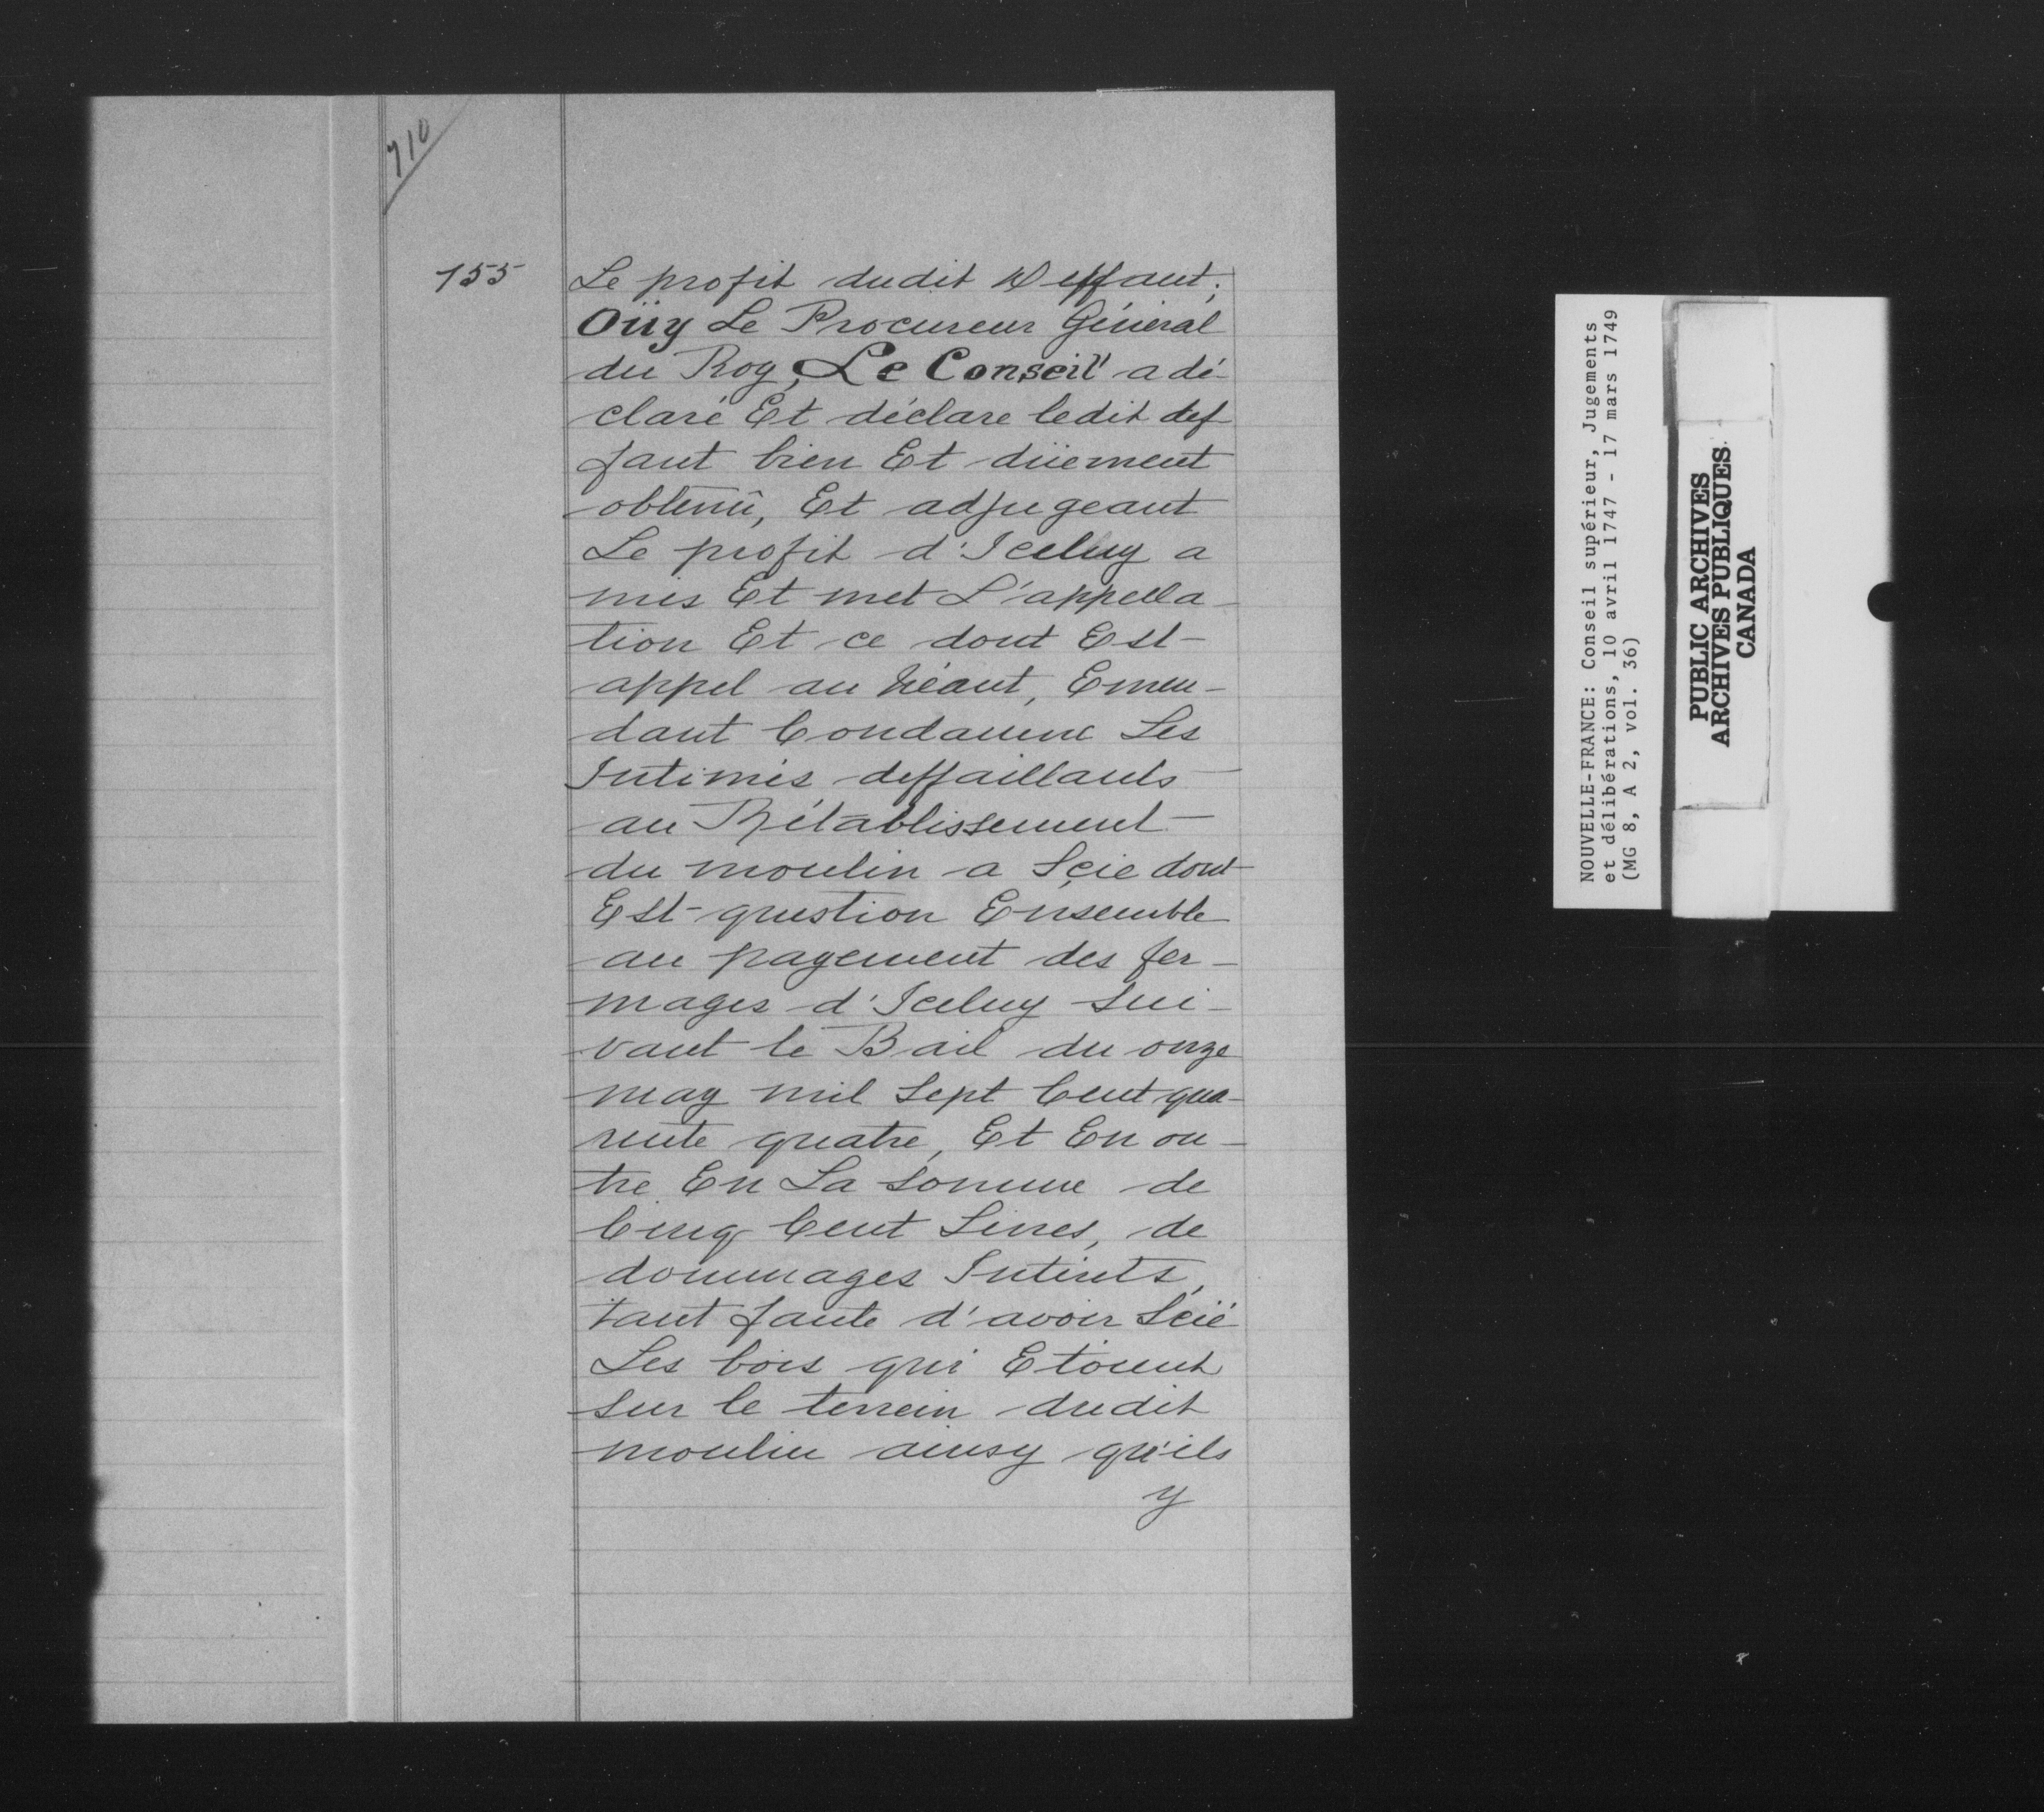 710
155
Le profit dudit Deffaut;
Oüy Le Procureur Général
du Roy, Le Conseil a dé-
claré Et déclare ledit def
faut bien Et düement
obtenû, Et adjugeant
Le profit d'Iceluy a
mis Et met L'appella-
tion Et ce dont Est-
appel au Néant, Emen-
dant Condamne Les
Intimés deffaillants
au Rétablissement-
du moulin a Scie dont
Est question Ensemble
au payement des fer-
mages d'Iceluy sui-
vant le Bail du onze
may mil Sept Cent qua-
rente quatre, Et En ou-
tre En La somme de
Cinq Cent Livres, de
dommages Intérêts,
tant faute d'avoir Scié
Les bois qui Etoient
sur le terrein dudit
moulin ainsy qu'ils
y
NOUVELLE-FRANCE: Conseil supérieur, Jugements
et délibérations, 10 avril 1747 - 17 mars 1749
(MG 8, A 2, vol. 36)
PUBLIC ARCHIVES
ARCHIVES PUBLIQUES
CANADA